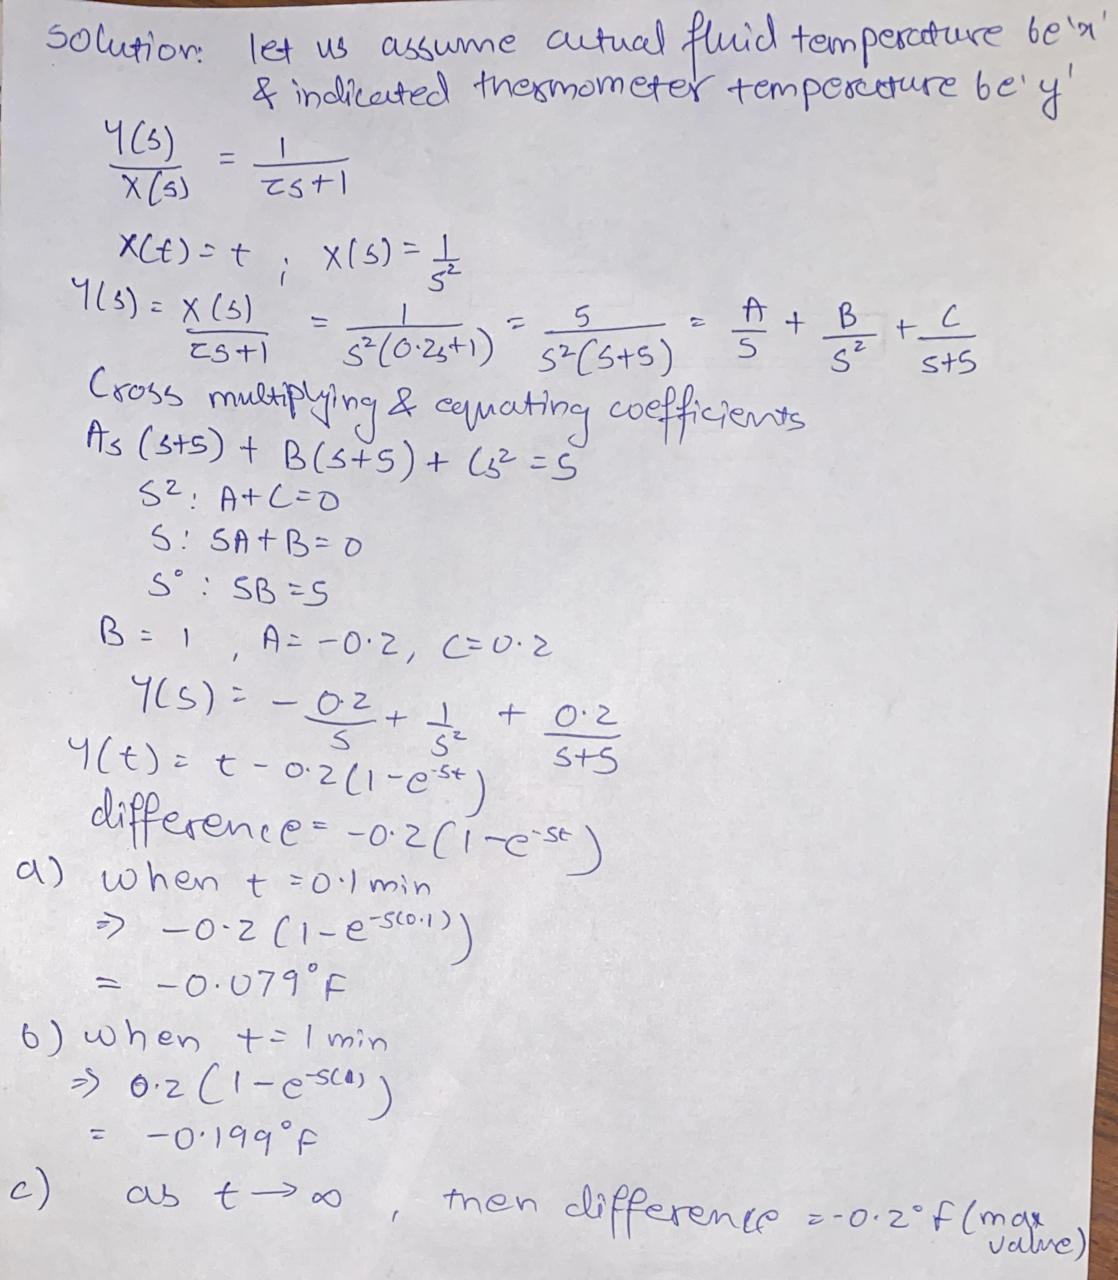 Solution: let us assume actual fluid temperature be 'x'
& indicated thermometer temperature be 'y'
Y(s)/X(s) = 1/(τs+1)
X(t) = t ; X(s) = 1/s²
Y(s) = X(s)/(τs+1) = 1/(s²(0.2s+1)) = 5/(s²(s+5)) = A/s + B/s² + C/(s+5)
Cross multiplying & equating coefficients
As (s+5) + B(s+5) + Cs² = 5
s² : A+C=0
s : 5A+B=0
s⁰ : 5B=5
B = 1 , A = -0.2, C=0.2
Y(s) = - 0.2/s + 1/s² + 0.2/(s+5)
Y(t) = t - 0.2(1-e^-5t)
difference = -0.2(1-e^-5t)
a) when t = 0.1 min
⇒ -0.2 (1-e^-5(0.1))
= -0.079°F
b) when t = 1 min
⇒ 0.2 (1-e^-5(1))
= -0.199°F
c) as t → ∞ , then difference = -0.2°F (max value)